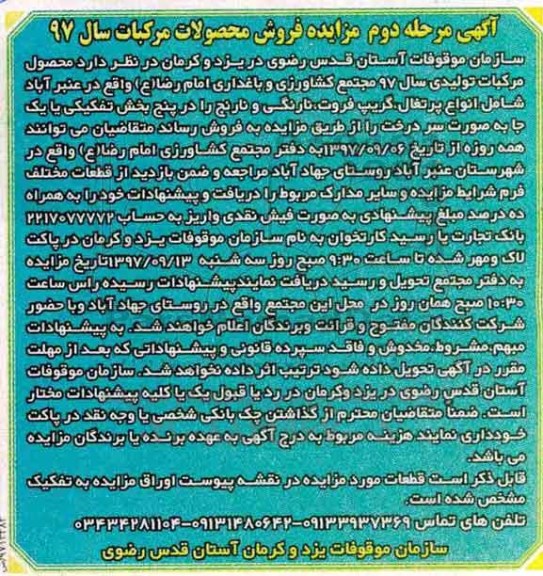 آگهی مرحله دوم مزایده فروش محصولات مرکبات سال ۹۷
سازمان موقوفات آستان قدس رضوی در یزد و کرمان در نظر دارد محصول
مرکبات تولیدی سال ۹۷ مجتمع کشاورزی و باغداری امام رضا(ع) واقع در عنبر آباد
شامل انواع پرتغال،گریپ فروت،نارنگی و نارنج را در پنج بخش تفکیکی یا یک
جا به صورت سر درخت را از طریق مزایده به فروش رساند متقاضیان می توانند
همه روزه از تاریخ ۱۳۹۷/۰۹/۰۶به دفتر مجتمع کشاورزی امام رضا(ع) واقع در
شهرستان عنبر آباد روستای جهاد آباد مراجعه و ضمن بازدید از قطعات مختلف
فرم شرایط مزایده و سایر مدارک مربوط را دریافت و پیشنهادات خود را به همراه
ده درصد مبلغ پیشنهادی به صورت فیش نقدی واریز به حساب ۲۲۱۷۰۷۷۷۷۲
بانک تجارت یا رسید کارتخوان به نام سازمان موقوفات یزد و کرمان در پاکت
لاک ومهر شده تا ساعت ۹:۳۰ صبح روز سه شنبه ۱۳۹۷/۰۹/۱۳تاریخ مزایده
به دفتر مجتمع تحویل و رسید دریافت نمایندپیشنهادات رسیده راس ساعت
۱۰:۳۰ صبح همان روز در محل این مجتمع واقع در روستای جهاد آباد وبا حضور
شرکت کنندگان مفتوح و قرائت وبرندگان اعلام خواهند شد. به پیشنهادات
مبهم،مشروط،مخدوش و فاقد سپرده قانونی و پیشنهاداتی که بعد از مهلت
مقرر در آگهی تحویل داده شود ترتیب اثر داده نخواهد شد. سازمان موقوفات
آستان قدس رضوی در یزد وکرمان در رد یا قبول یک یا کلیه پیشنهادات مختار
است. ضمنا متقاضیان محترم از گذاشتن چک بانکی شخصی یا وجه نقد در پاکت
خودداری نمایند هزینه مربوط به درج آگهی به عهده برنده یا برندگان مزایده
می باشد.
قابل ذکر است قطعات مورد مزایده در نقشه پیوست اوراق مزایده به تفکیک
مشخص شده است.
تلفن های تماس ۰۹۱۳۳۹۳۷۳۶۹-۰۹۱۳۱۴۸۰۶۴۲-۰۳۴۳۴۲۸۱۱۰۴
سازمان موقوفات یزد و کرمان آستان قدس رضوی